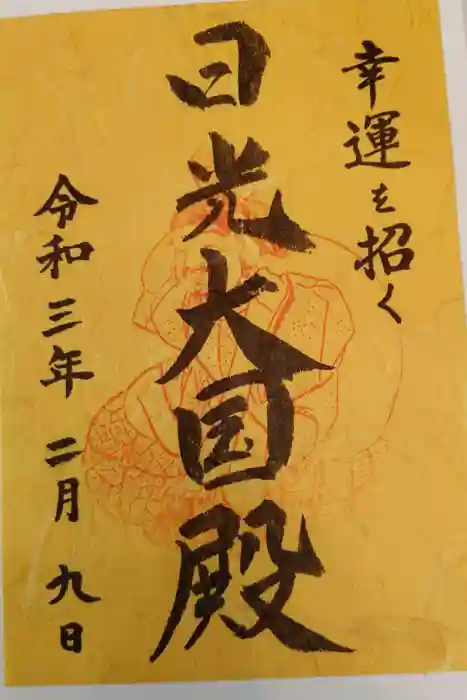 幸運を招く
日光大国殿
令和三年二月九日